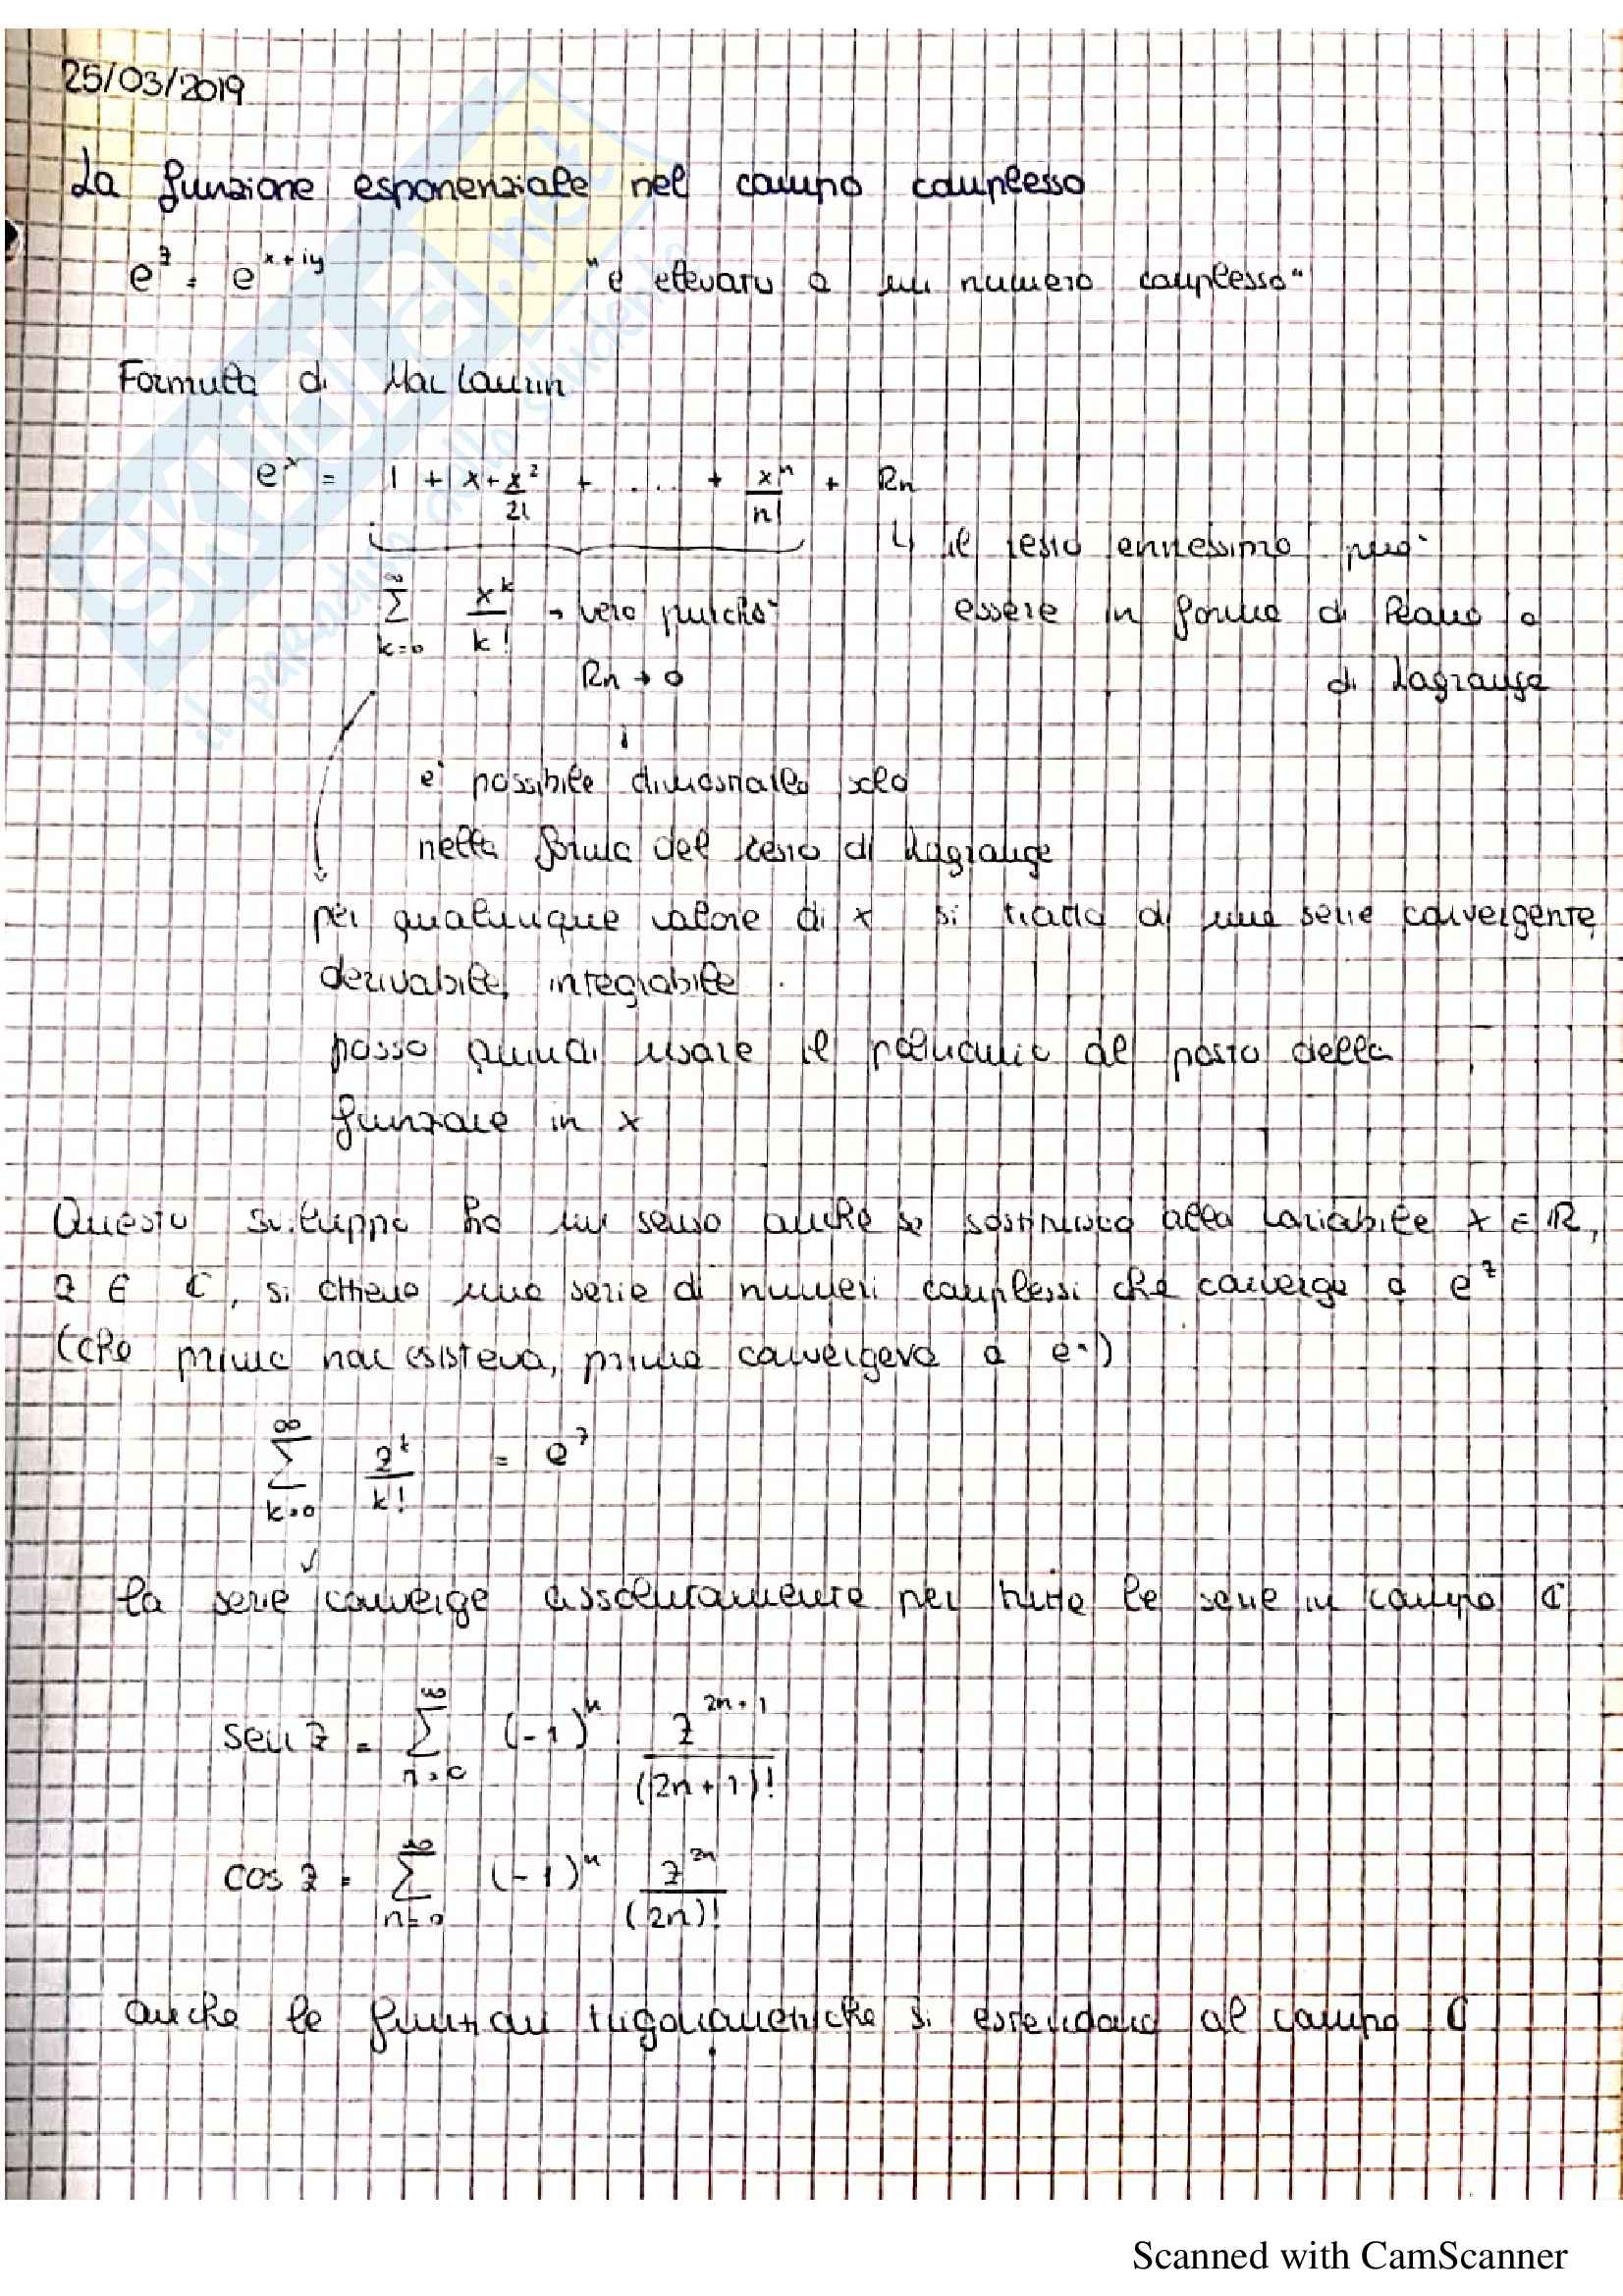 25/03/2019
La funzione esponenziale nel campo complesso
e^z = e^{x+iy} "e elevato a un numero complesso"
Formula di Mac Laurin
e^x = 1 + x + x²/2! + ... + x^n/n! + Rn
↳ il resto ennesimo può
∑_{k=0}^{∞} x^k/k! → vero purché essere in forma di Peano o
Rn → 0 di Lagrange
↓
e' possibile dimostrarlo solo
nella forma del resto di Lagrange
per qualunque valore di x si tratta di una serie convergente,
derivabile, integrabile
posso quindi usare il polinomio al posto della
funzione in x
Questo sviluppo ha un senso anche se sostituisco alla variabile x ∈ ℝ,
z ∈ ℂ, si ottiene una serie di numeri complessi che converge a e^z
(che prima non esisteva, prima convergeva a e^x)
∑_{k=0}^{∞} z^k/k! = e^z
↓
la serie converge assolutamente per tutte le serie in campo ℂ
sen z = ∑_{n=0}^{∞} (-1)^n z^{2n+1}/(2n+1)!
cos z = ∑_{n=0}^{∞} (-1)^n z^{2n}/(2n)!
anche le funzioni trigonometriche si estendono al campo ℂ
SKUOLA.net
il paradiso dello studente
Scanned with CamScanner